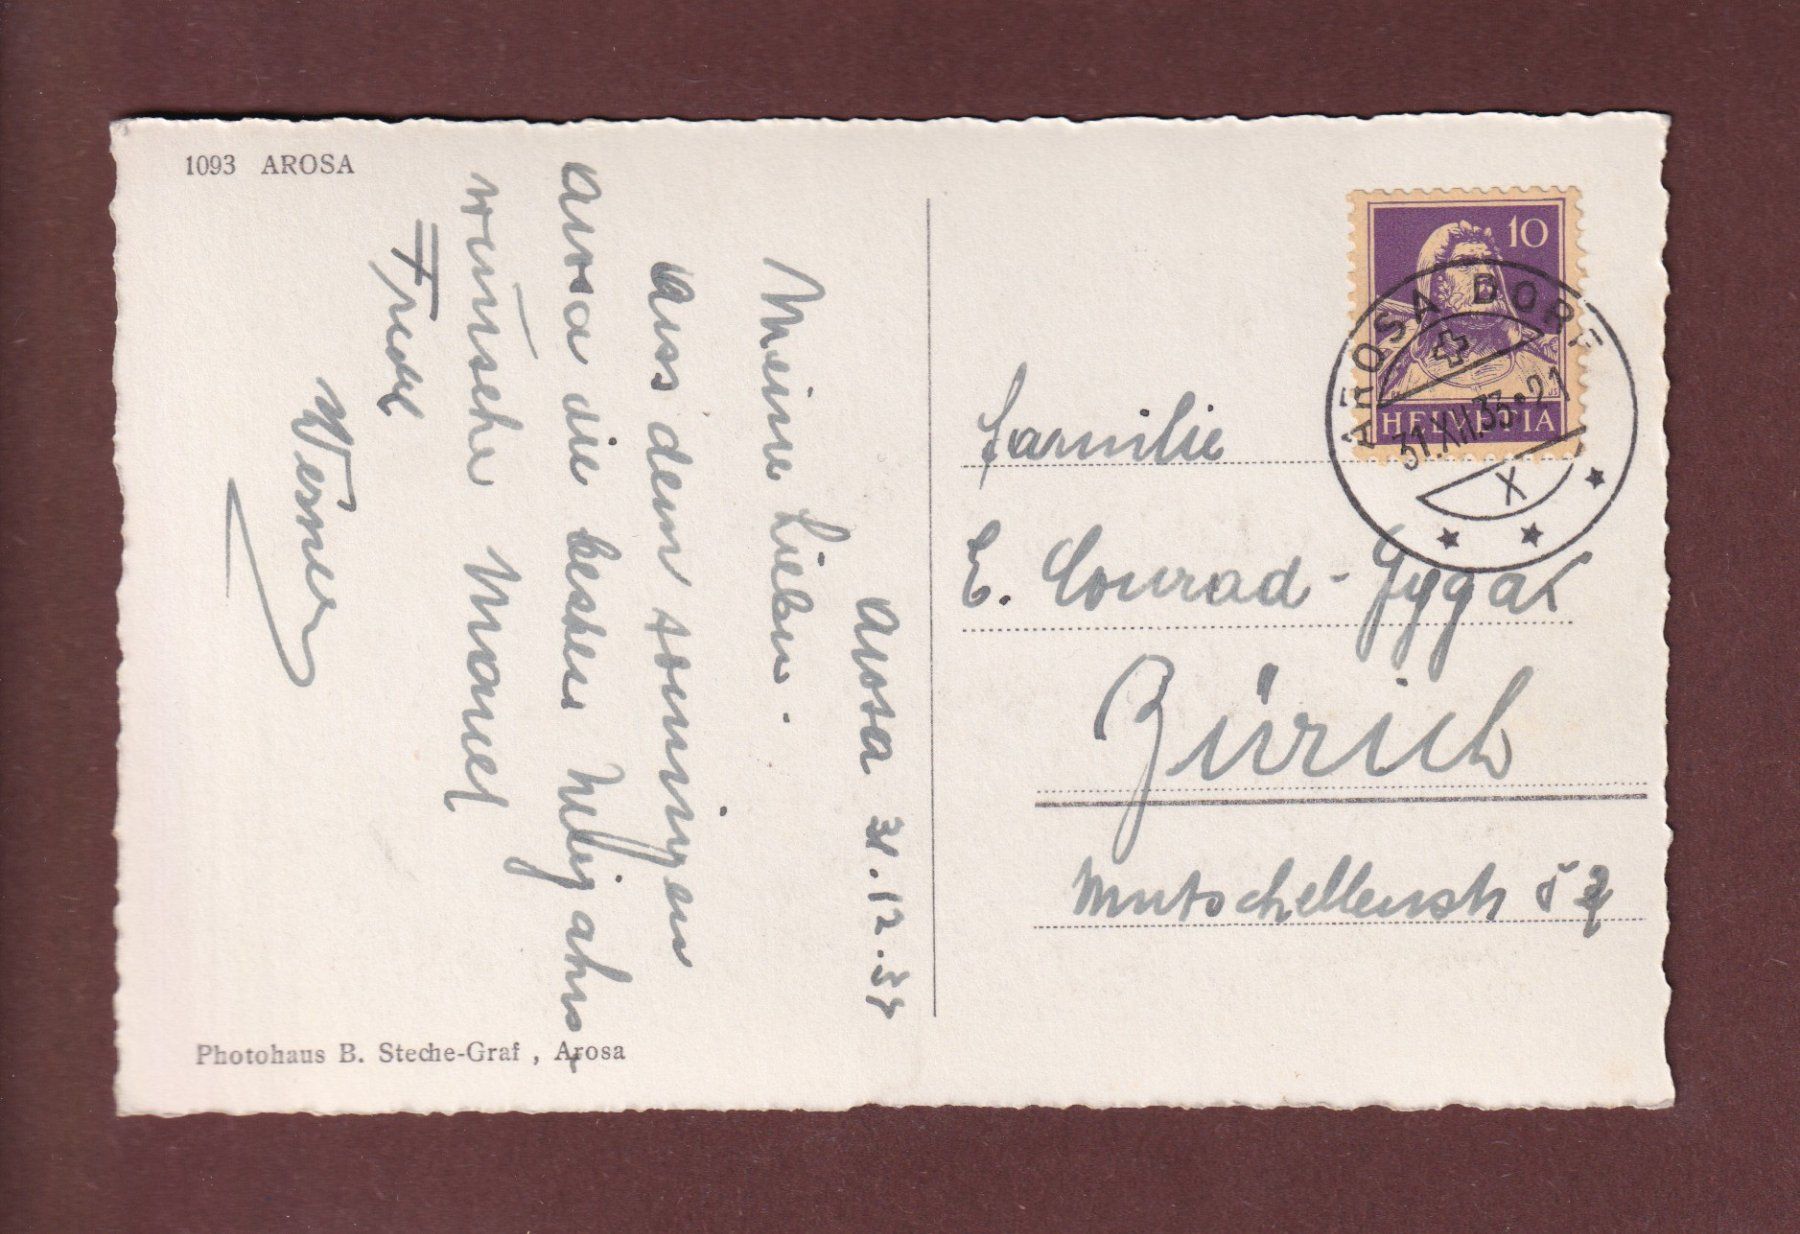 1093 AROSA
Arosa 31.12.
Meine Lieben.
Aus dem sonnigen
Arosa die besten Neujahrs-
wünsche
Werner
Photohaus B. Steche-Graf , Arosa
10
HELVETIA
AROSA DORF
31.XII.33•21
X
Familie
E. Conrad-Gygax
Zürich
Mutschellenstr